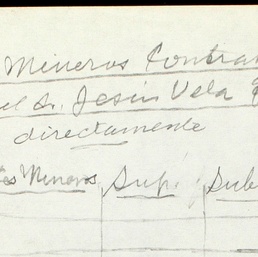 Mineros Contra
el Sr. Jesús Vela
directamente
Mineros Sup. Sub